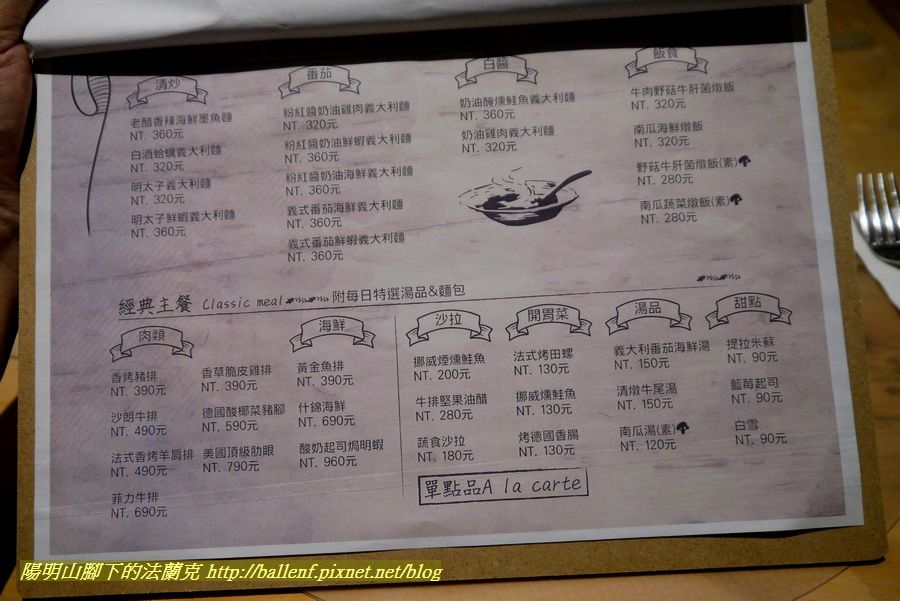 清炒
老醋香辣海鮮墨魚麵
NT. 360元
白酒蛤蠣義大利麵
NT. 320元
明太子義大利麵
NT. 320元
明太子鮮蝦義大利麵
NT. 360元
番茄
粉紅醬奶油雞肉義大利麵
NT. 320元
粉紅醬奶油鮮蝦義大利麵
NT. 360元
粉紅醬奶油海鮮義大利麵
NT. 360元
義式番茄海鮮義大利麵
NT. 360元
義式番茄鮮蝦義大利麵
NT. 360元
白醬
奶油醃燻鮭魚義大利麵
NT. 360元
奶油雞肉義大利麵
NT. 320元
飯食
牛肉野菇牛肝菌燉飯
NT. 320元
南瓜海鮮燉飯
NT. 320元
野菇牛肝菌燉飯(素)
NT. 280元
南瓜蔬菜燉飯(素)
NT. 280元
經典主餐 Classic meal 附每日特選湯品&麵包
肉類
香烤豬排
NT. 390元
沙朗牛排
NT. 490元
法式香烤羊肩排
NT. 490元
菲力牛排
NT. 690元
香草脆皮雞排
NT. 390元
德國酸椰菜豬腳
NT. 590元
美國頂級肋眼
NT. 790元
海鮮
黃金魚排
NT. 390元
什錦海鮮
NT. 690元
酸奶起司焗明蝦
NT. 960元
沙拉
挪威煙燻鮭魚
NT. 200元
牛排堅果油醋
NT. 280元
蔬食沙拉
NT. 180元
開胃菜
法式烤田螺
NT. 130元
挪威燻鮭魚
NT. 130元
烤德國香腸
NT. 130元
湯品
義大利番茄海鮮湯
NT. 150元
清燉牛尾湯
NT. 150元
南瓜湯(素)
NT. 120元
甜點
提拉米蘇
NT. 90元
藍莓起司
NT. 90元
白雪
NT. 90元
單點品A la carte
陽明山腳下的法蘭克 http://ballenf.pixnet.net/blog